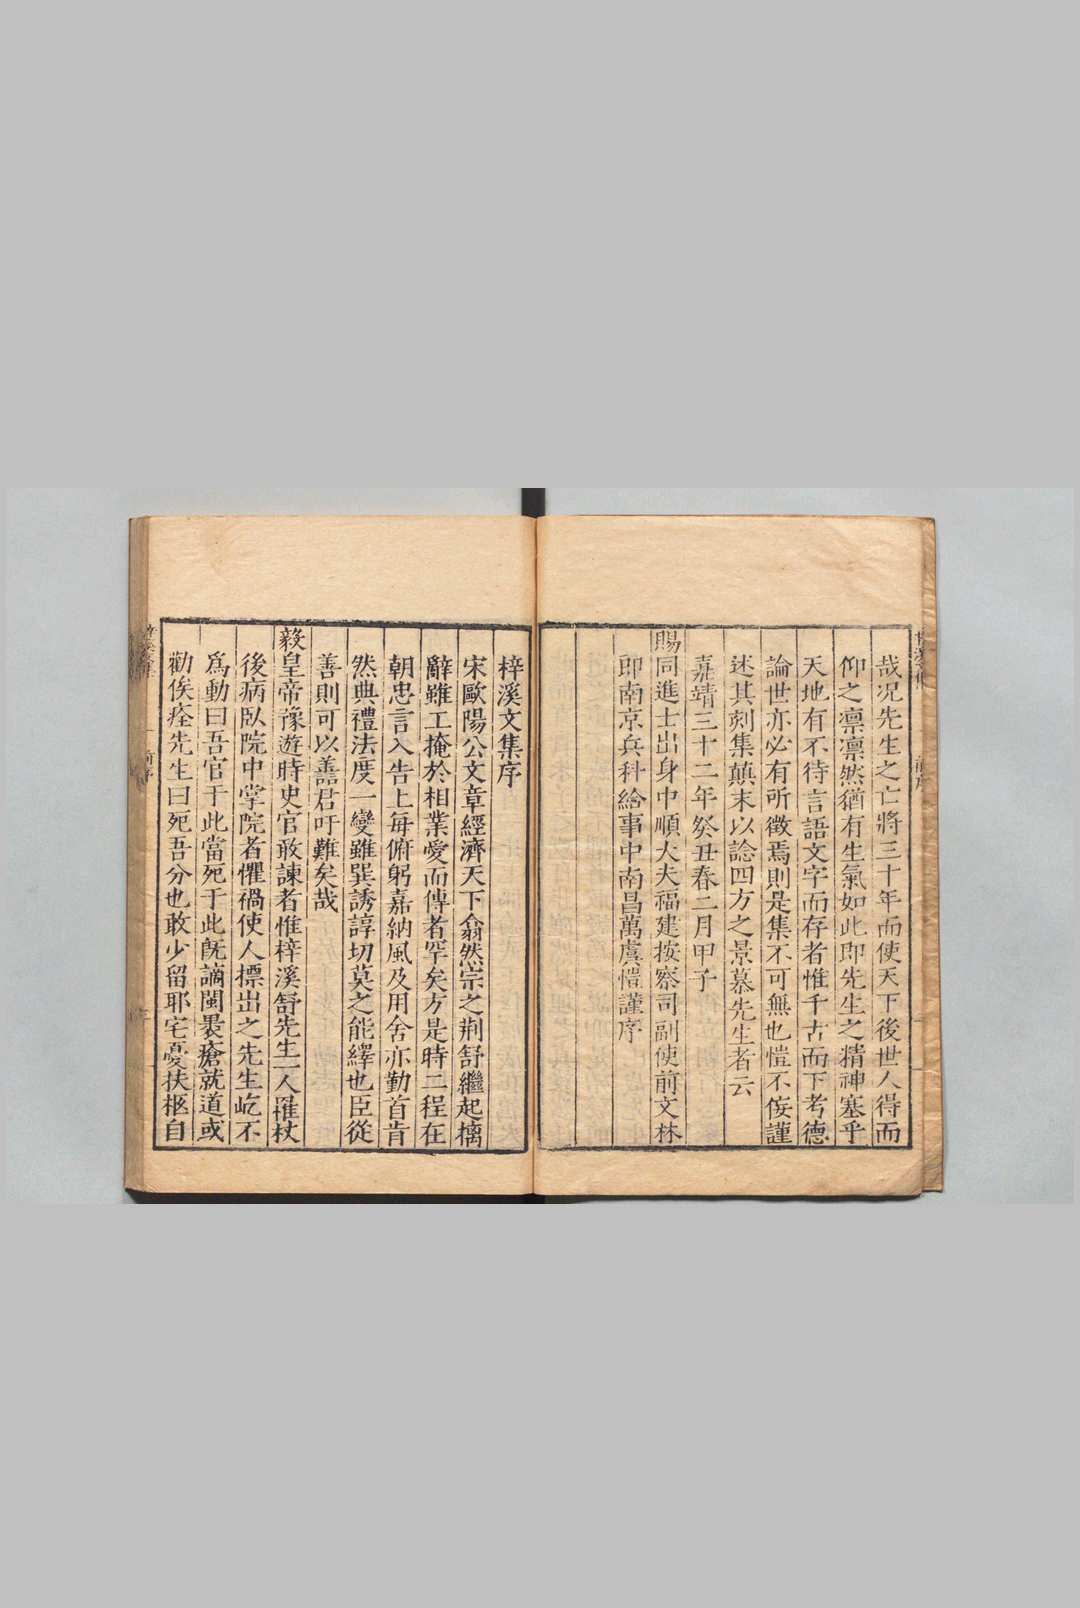 哉况先生之亡將三十年而使天下後世人得而
仰之凛凛然猶有生氣如此即先生之精神塞乎
天地有不待言語文字而存者惟千古而下考德
論世亦必有所徵焉則是集不可無也愷不佞謹
述其刻集顛末以諗四方之景慕先生者云
嘉靖三十二年癸丑春二月甲子
賜同進士出身中順大夫福建按察司副使前文林
郎南京兵科給事中南昌萬虞愷謹序
梓溪文集序
宋歐陽公文章經濟天下翕然宗之荆舒繼起摛
辭雖工掩於相業愛而傳者罕矣方是時二程在
朝忠言入告上每俯躬嘉納風及用舍亦勤首肯
然典禮法度一變雖巽誘諄切莫之能繹也臣從
善則可以善君吁難矣哉
毅皇帝豫遊時史官敢諫者惟梓溪舒先生一人罹杖
後病臥院中掌院者懼禍使人摽出之先生屹不
爲動曰吾官于此當死于此既謫閩褁瘡就道或
勸俟痊先生曰死吾分也敢少留耶宅憂扶柩自